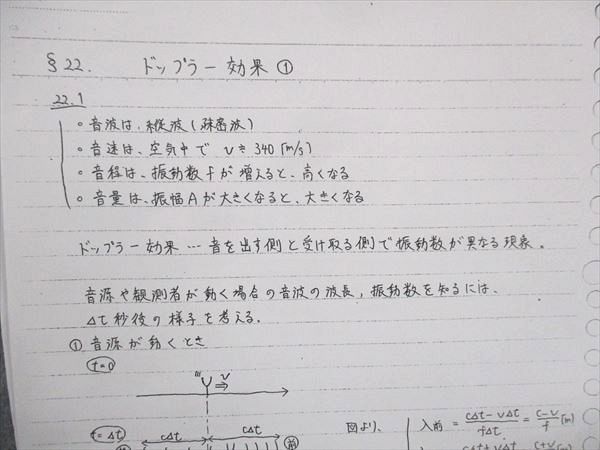 §22. ドップラー効果 ①
22.1
◦ 音波は、縦波(疎密波)
◦ 音速は、空気中で V≒340[m/s]
◦ 音程は、振動数fが増えると、高くなる
◦ 音量は、振幅Aが大きくなると、大きくなる
ドップラー効果 … 音を出す側と受け取る側で振動数が異なる現象。
音源や観測者が動く場合の音波の波長,振動数を知るには、
Δt秒後の様子を考える.
① 音源が動くとき
t=0
v
t=Δt
cΔt cΔt
前
図より、
λ前 = (cΔt-vΔt)/(fΔt) = (c-v)/f [m]
cΔt+vΔt c+v